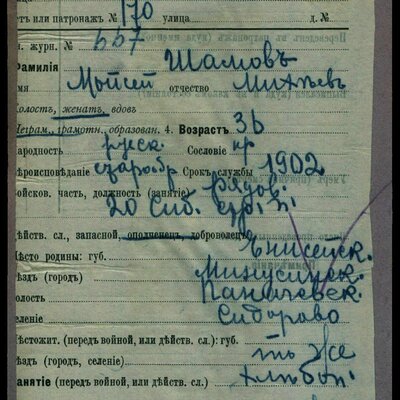 ет или патронаж № 170 улица д. №
н. журн. № 557
Фамилия Шамовъ
мя Мойсей отчество Михѣев
Холостъ, женатъ, вдовъ
Неграм., грамотн., образован. 4. Возрастъ 36
ародность русск. Сословіе кр
ѣроисповѣданіе старобр Срокъ службы 1902
ойсков. часть, должность (занятіе) рядов.
20 Сиб. стр. п.
ѣйств. сл., запасной, ополченецъ, доброволецъ
ѣсто родины: губ. Енисейск.
ѣздъ (городъ) Минусинск.
олость
еленіе Сидорово
ѣстожит. (передъ войной, или дѣйств. сл.): губ.
ѣздъ (городъ, селеніе) то же
анятіе (передъ войной, или дѣйств. сл.) хлѣбоп.